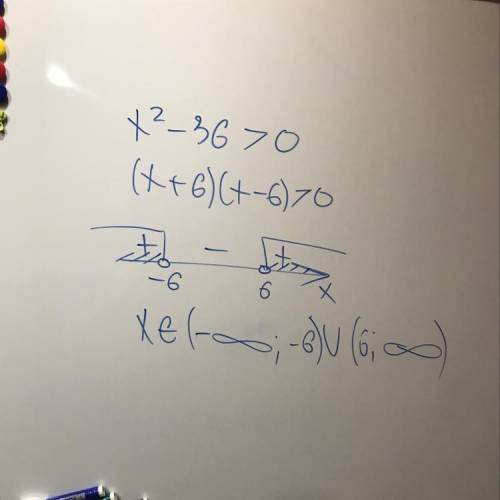 x² - 36 > 0
(x + 6)(x - 6) > 0
+ - +
-6 6 x
x ∈ (-∞; -6) ∪ (6; ∞)